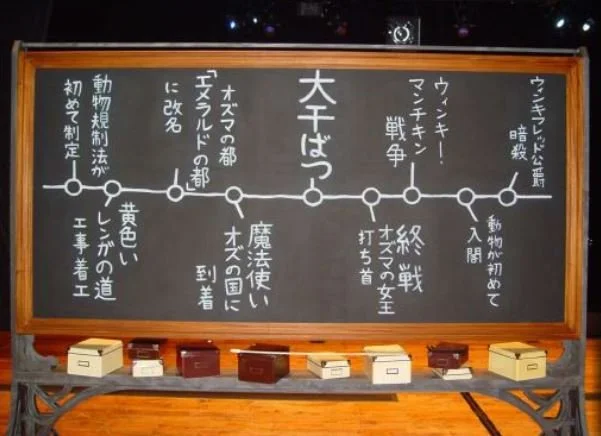 ウィンキフレッド公爵
暗殺
動物が初めて
入閣
ウィンキー・
マンチキン
戦争
終戦
オズマの女王
打ち首
大干ばつ
魔法使い
オズの国に
到着
オズマの都
「エメラルドの都」
に改名
黄色い
レンガの道
工事着工
動物規制法が
初めて制定